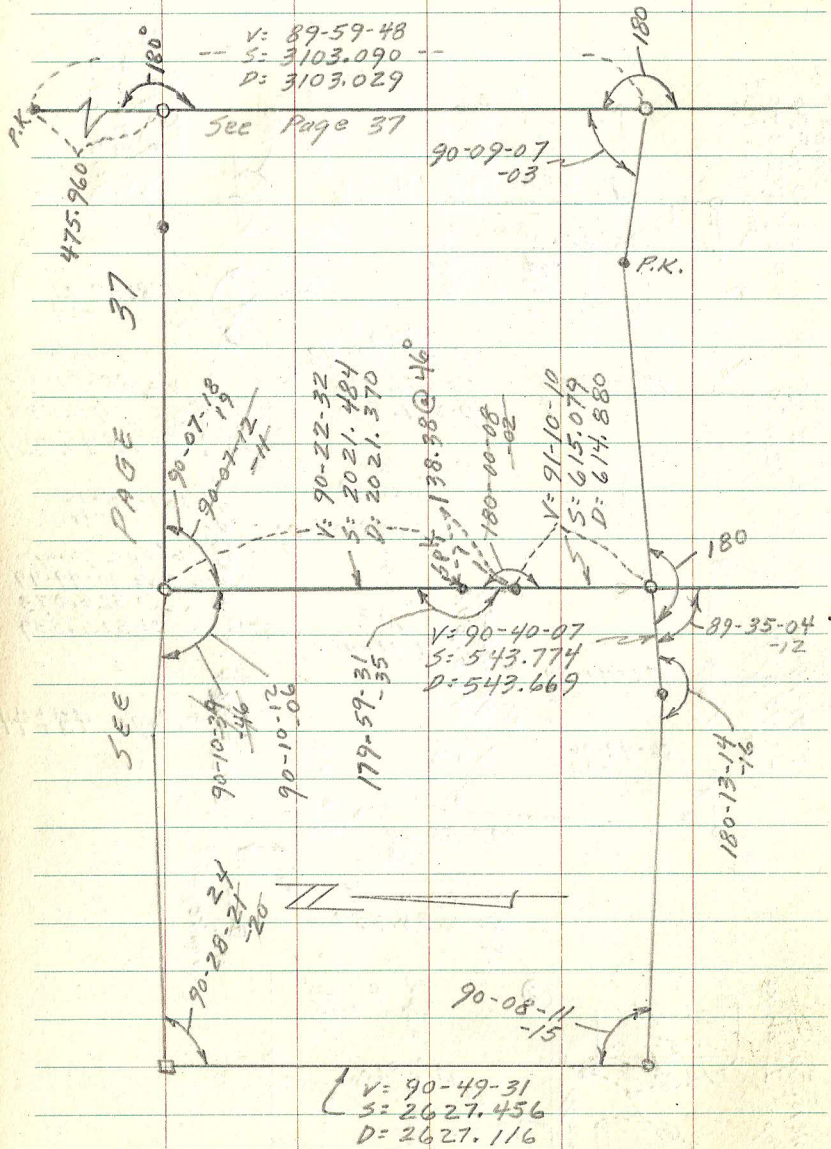 V= 89-59-48
S= 3103.090
D= 3103.029
180°
180
P.K.
See Page 37
475.960
90-09-07
-03
P.K.
SEE PAGE 37
90-07-18
19
90-07-12
-11
V= 90-22-32
S= 2021.484
D= 2021.370
138.38@46°
180-00-08
-02
V= 91-10-10
S= 615.079
D= 614.880
180
89-35-04
-12
V= 90-40-07
S= 543.774
D= 543.669
179-59-31
-35
-46
90-10-12
-06
180-13-14
-16
24
90-28-21
-20
90-08-11
-15
V= 90-49-31
S= 2627.456
D= 2627.116